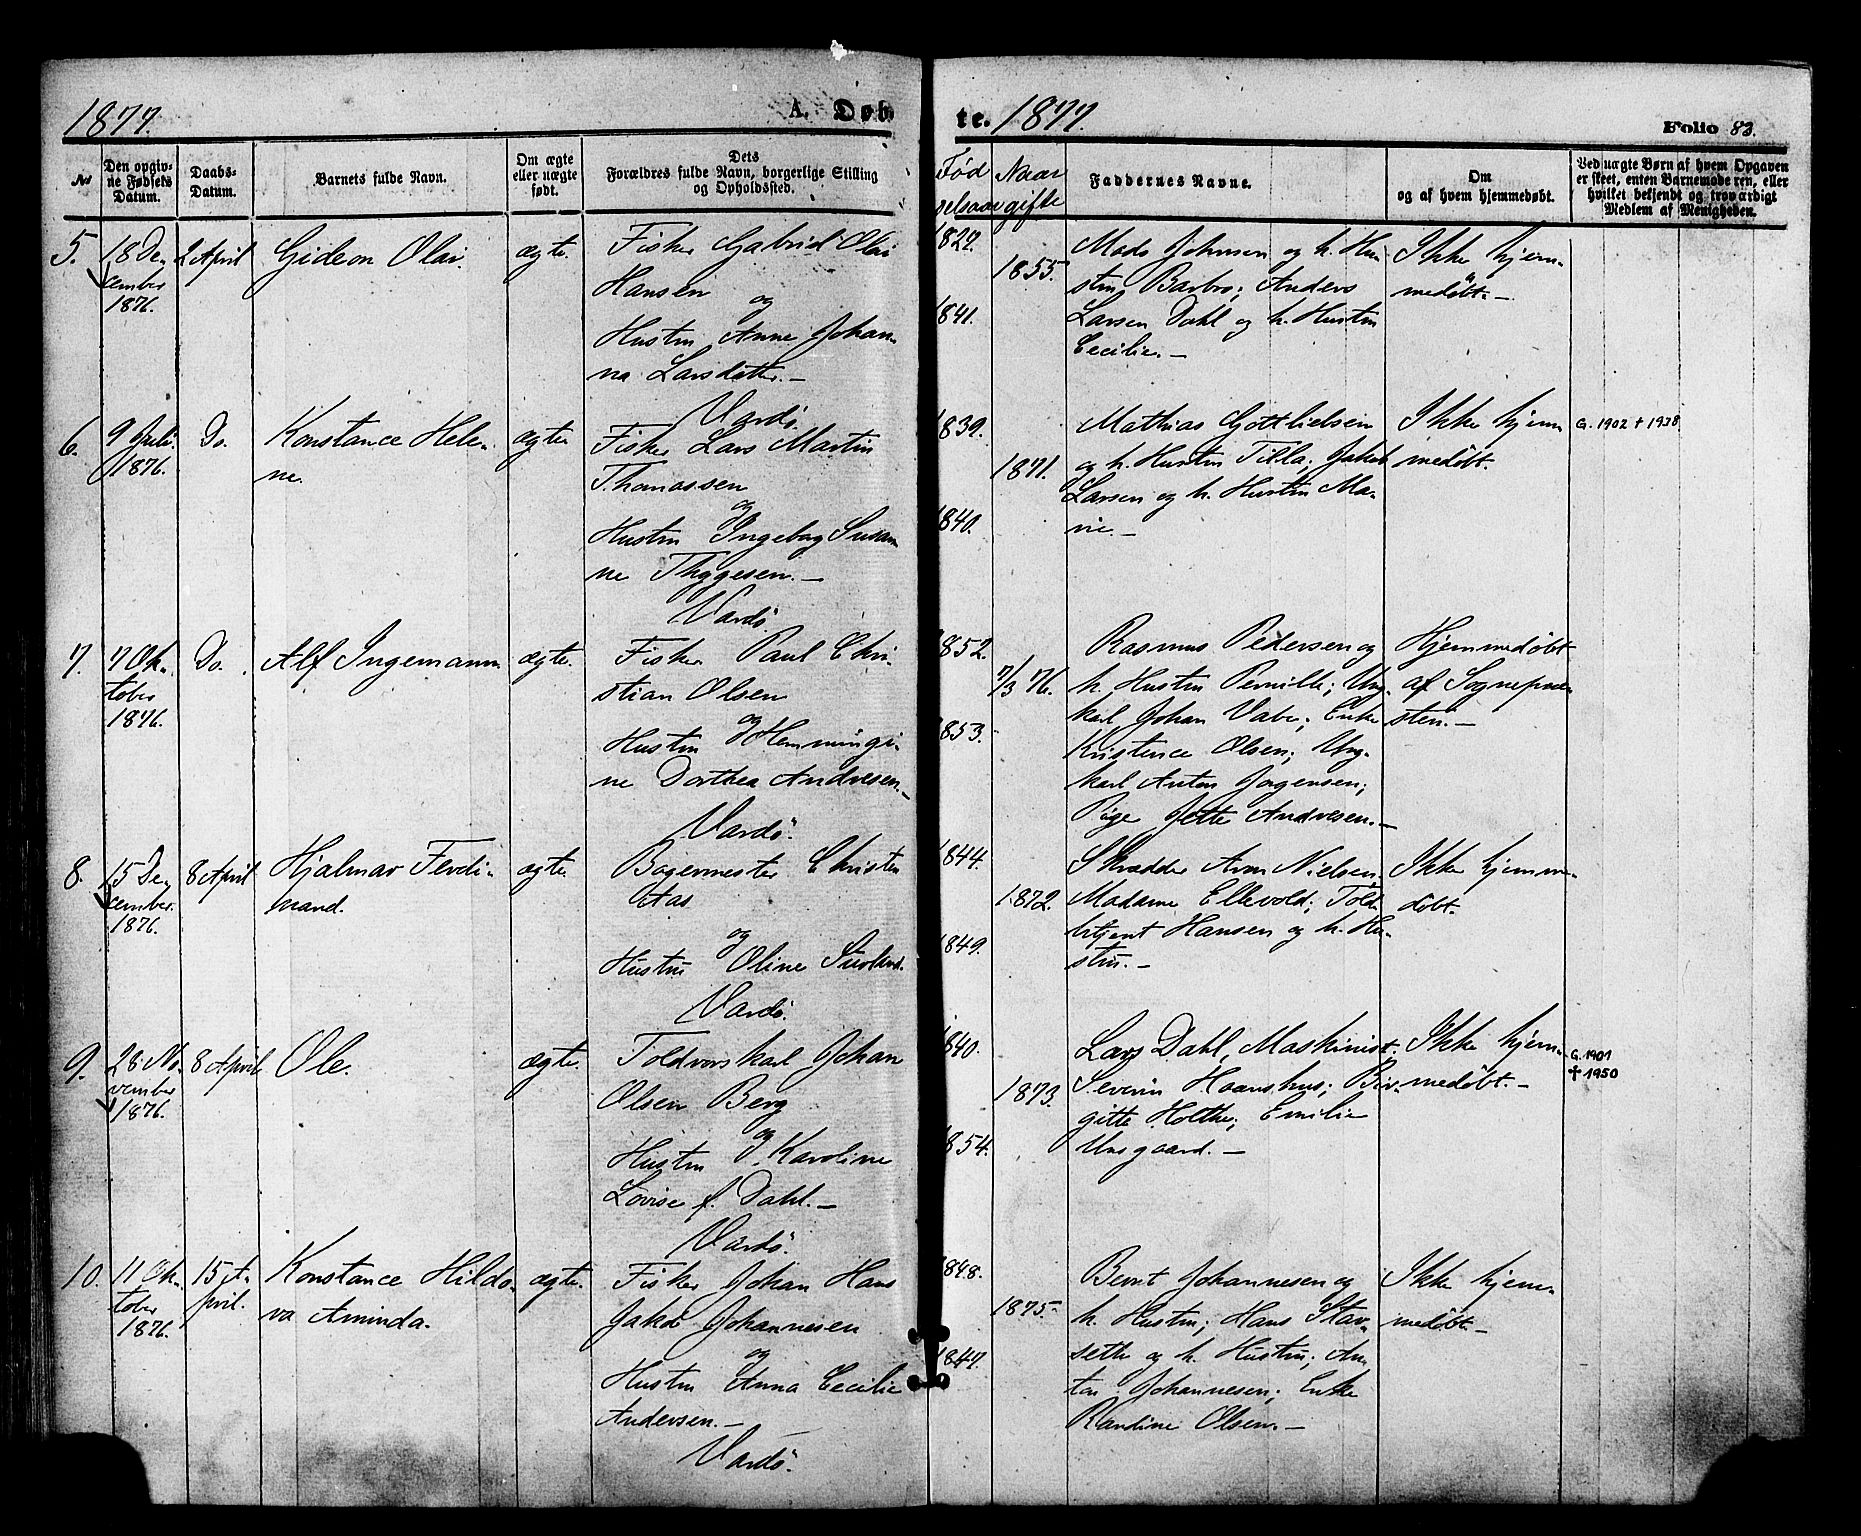 1877.
A. Døb
te. 1877.
Folio 83.
No
Den opgiv-
ne Fødsels
Datum.
Daabs-
Datum.
Barnets fulde Navn.
Om ægte
eller uægte
født.
Dets
Forældres fulde Navn, borgerlige Stilling
og Opholdssted.
Fød
selsaar
Naar
gifte
Faddernes Navne.
Om
og af hvem hjemmedøbt.
Ved uægte Børn af hvem Opgaven
er skeet, enten Barnemoderen, eller
hvilket bekjendt og troværdigt
Medlem af Menigheden.
5.
18 De-
cember
1876.
2 April
Gideon Olai.
ægte.
Fisker Gabriel Olai
Hansen
og
Hustru Anne Johan-
na Larsdatter.-
Vardø.
1827.
1841.
1855.
Mads Johnsen og h. Hu-
stru Barbro; Anders
Larsen Dahl og h. Hustru
Cecilie.-
Ikke hjem-
medøbt.-
6.
9 Juli
1876.
Do.
Konstance Hele-
ne.
ægte
Fisker Lars Martin
Thomassen
og
Hustru Ingeborg Susan-
ne Thygesen.-
Vardø
1839.
1840.
1871.
Mathias Gottliebsen
og h. Hustru Tilla; Jakob
Larsen og h. Hustru Ma-
rie.-
Ikke hjem-
medøbt.
G. 1902 † 1938
7.
7 Ok-
tober
1876.
Do.
Alf Ingemann
ægte.
Fisker Paul Chri-
stian Olsen
og
Hustru Hemmingi-
ne Dorthea Andresen.-
Vardø.
1852.
1853.
7/3 76.
Rasmus Pedersen og
h. Hustru Pernille; Ung-
karl Johan Vabe; Enke
Kristence Olsen; Ung-
karl Anton Jørgensen;
Pige Jette Andresen.-
Hjemmedøbt
af Sognepræ-
sten.-
8.
15 De-
cember
1876.
8 April
Hjalmar Ferdi-
nand.
ægte.
Bagermester Christen
Aas
og
Hustru Oline
Vardø.
1844.
1849.
1872.
Skrædder Aron Nielsen.
Madame Ellevold; Told-
betjent Hansen og h. Hu-
stru.-
Ikke hjemme-
døbt.
9.
28 No-
vember
1876.
8 April.
Ole.
ægte.
Toldvorskarl Johan
Olsen Berg
og
Hustru Karoline
Lovise f. Dahl.-
Vardø.
1840.
1854.
1873.
Lars Dahl, Maskinist.
Severin Haanshus; Bir-
gitte Holthe; Emilie
Unsgaard.-
Ikke hjem-
medøbt.-
G. 1901
† 1950
10.
11 Ok-
tober
1876.
15 A-
pril.
Konstance Hildo-
va Aminda.
ægte.
Fisker Johan Hans
Jakob Johannesen
og
Hustru Anna Cecilie
Andersen.-
Vardø.
1848.
1847.
1875.
Bernt Johannesen og
h. Hustru; Hans Stav-
seth og h. Hustru; An-
ton Johannesen; Enke
Randine Olsen.-
Ikke hjem-
medøbt.-